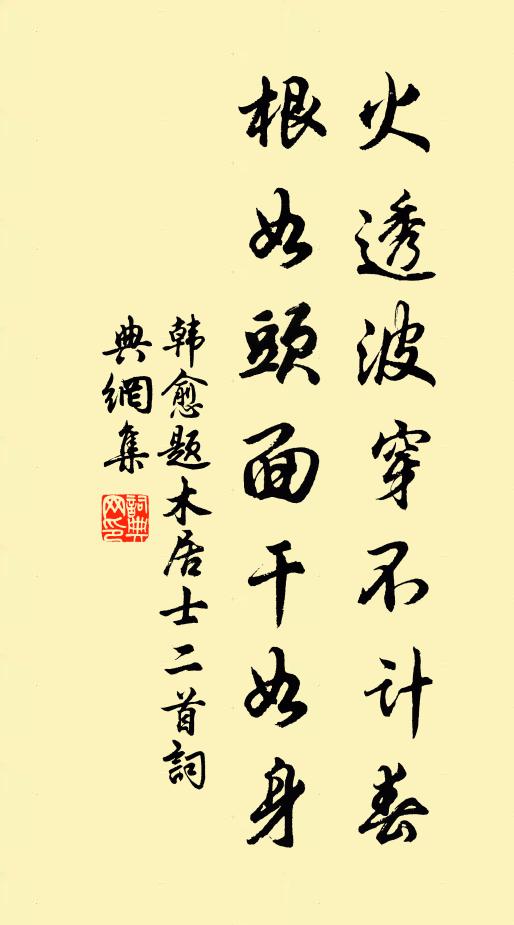 火透波穿不计春
根如頭面干如身
韩愈题木居士二首詞
典網集
詞典網印